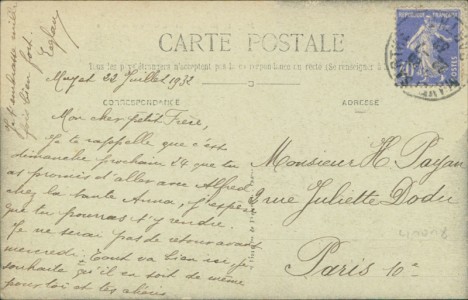 Je t'embrasse mille
fois bien fort.
CARTE POSTALE
Tous les pays étrangers n'acceptent pas la correspondance au recto (Se renseigner à
Mayet 22 Juillet 1932
CORRESPONDANCE
ADRESSE
REPUBLIQUE FRANÇAISE
Mon cher petit Frère,
Je te rappelle que c'est
dimanche prochain 24 que tu
as promis d'aller avec Alfred
chez la tante Anna, j'espère
que tu pourras t'y rendre.
Je ne serai pas de retour avant
mercredi. Tout va bien ici, je
souhaite qu'il en soit de même
pour toi et tes
Monsieur H. Payan
8 rue Juliette Dodu
Paris 10e